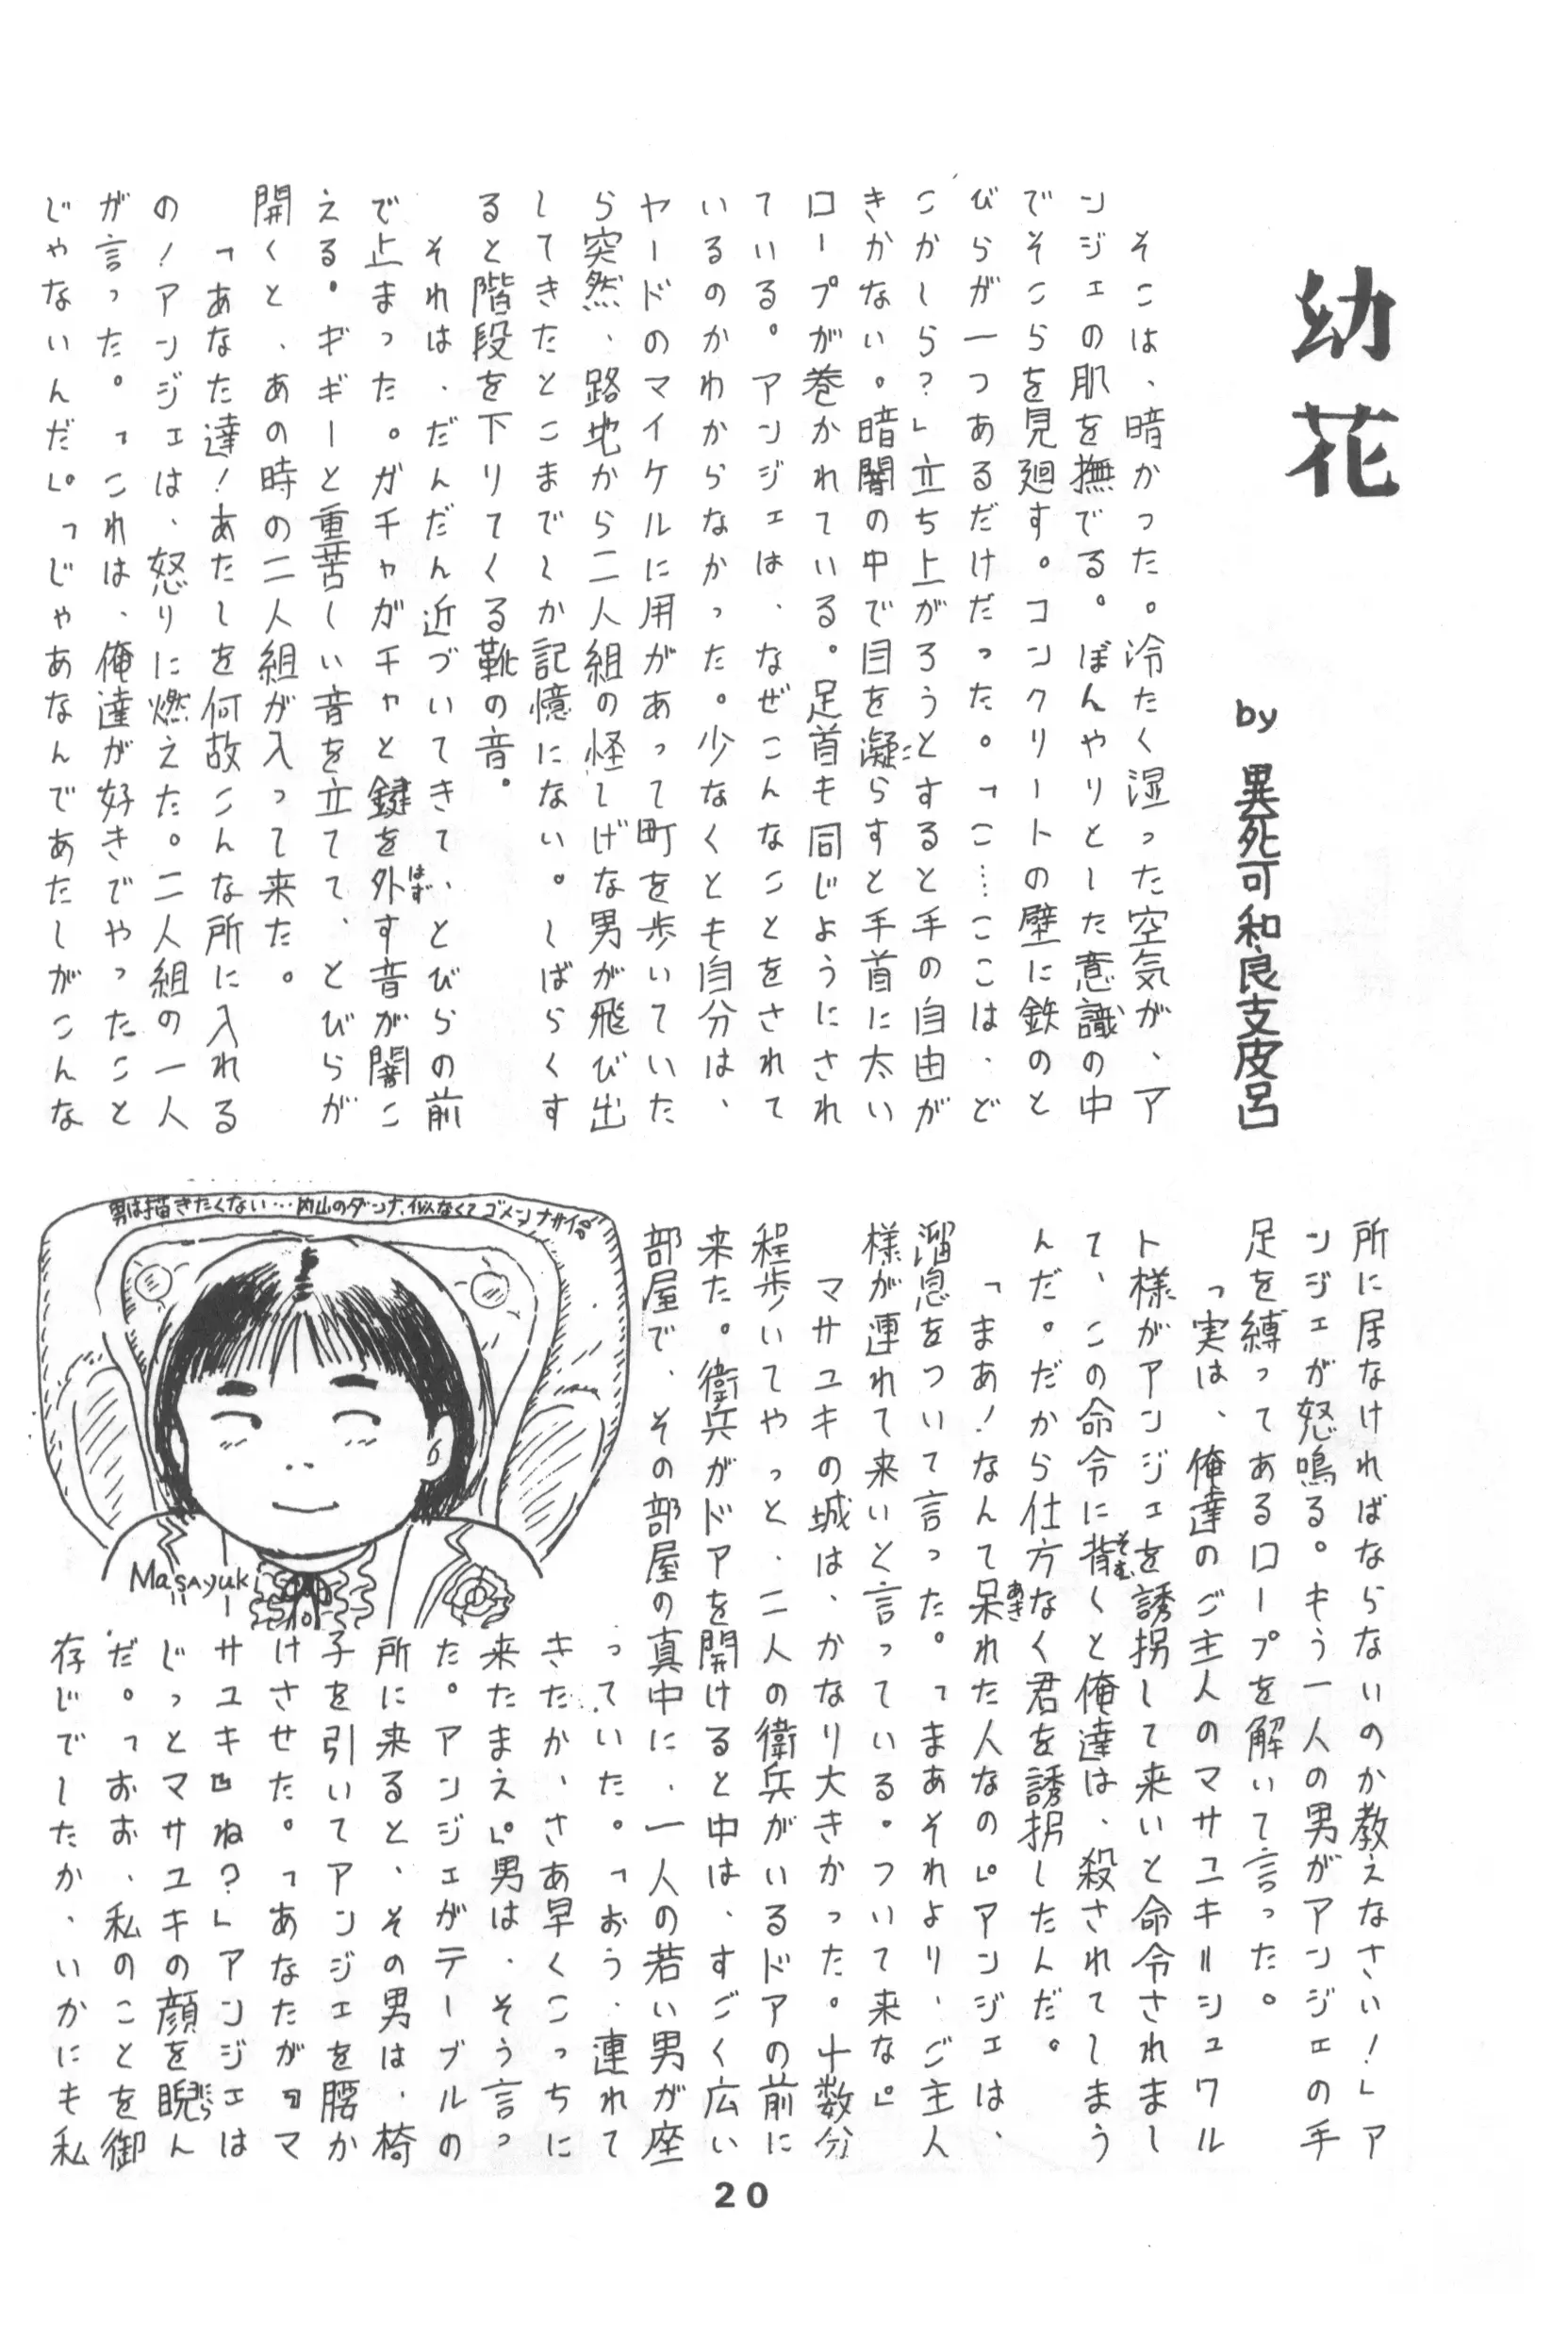 幼花
by 異死可和良支皮呂
そこは、暗かった。冷たく湿った空気が、ア
ンジェの肌を撫でる。ぼんやりとした意識の中
でそこらを見廻す。コンクリートの壁に鉄のと
びらが一つあるだけだった。「こ…ここは、ど
こかしら?」立ち上がろうとすると手の自由が
きかない。暗闇の中で目を凝らすと手首に太い
ロープが巻かれている。足首も同じようにされ
ている。アンジェは、なぜこんなことをされて
いるのかわからなかった。少なくとも自分は、
ヤードのマイケルに用があって町を歩いていた
ら突然、路地から二人組の怪しげな男が飛び出
してきたとこまでしか記憶にない。しばらくす
ると階段を下りてくる靴の音。
それは、だんだん近づいてきて、とびらの前
で止まった。ガチャガチャと鍵を外す音が闇こ
える。ギギーと重苦しい音を立てて、とびらが
開くと、あの時の二人組が入って来た。
「あなた達!あたしを何故こんな所に入れる
の!アンジェは、怒りに燃えた。二人組の一人
が言った。「これは、俺達が好きでやったこと
じゃないんだ」。「じゃあなんであたしがこんな
所に居なければならないのか教えなさい!」ア
ンジェが怒鳴る。もう一人の男がアンジェの手
足を縛ってあるロープを解いて言った。
「実は、俺達のご主人のマサユキ=シュワル
ト様がアンジェを誘拐して来いと命令されまし
て、この命令に背くと俺達は、殺されてしまう
んだ。だから仕方なく君を誘拐したんだ。
「まあ!なんて呆れた人なの」アンジェは、
溜息をついて言った。「まあそれより、ご主人
様が連れて来いと言っている。ついて来な」
マサユキの城は、かなり大きかった。十数分
程歩いてやっと、二人の衛兵がいるドアの前に
来た。衛兵がドアを開けると中は、すごく広い
部屋で、その部屋の真中に、一人の若い男が座
っていた。「おう、連れて
きたか、さあ早くこっちに
来たまえ」男は、そう言っ
た。アンジェがテーブルの
所に来ると、その男は、椅
子を引いてアンジェを腰か
けさせた。「あなたが『マ
サユキ』ね?」アンジェは
じっとマサユキの顔を睨ん
だ。「おお、私のことを御
存じでしたか、いかにも私
男は描きたくない…内山のダンナ、似なくてゴメンナサイ
Masayuki
20